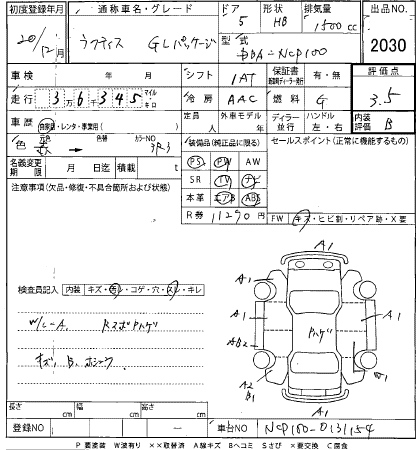 初度登録年月 通称車名・グレード ドア 形状 排気量 出品NO.
20/12月 ラフティス GLパッケージ 5 HB 1500cc 2030
型式 DBA-NCP100
車検 年 月 シフト 1AT 保証書 有・無 評価点
走行 3万6千345 マイル キロ 冷房 AAC 燃料 G 3.5
車歴 自家用・レンタ・事業用( ) 定員 人 外車モデル 年 ディーラー 並行 ハンドル 左・右 内装評価 B
色 元色 → 色替 カラーNO 3R3 装備品(純正品に限る) セールスポイント(正常に機能するもの)
名義変更期限 月 日迄 積載 t PS PW AW
注意事項(欠品・修復・不具合箇所および状態) SR TV ナビ
本革 エアB ABS
R券 11290円 FW キズ・ヒビ割・リペア跡・X要
検査員記入 内装 キズ・汚レ・コゲ・穴・スレ・キレ
W/C-A RスポPハゲ
キズ, B,
A1
A1 A1
A1 Pハゲ A1
AB2
A2 B1 A1
A1
長さ cm 幅 cm 高さ cm
登録NO 車台NO NCP100-0131154
P 要塗装 W 波有り ××取替済 A 線キズ Bヘコミ Sさび ×要交換 C腐食